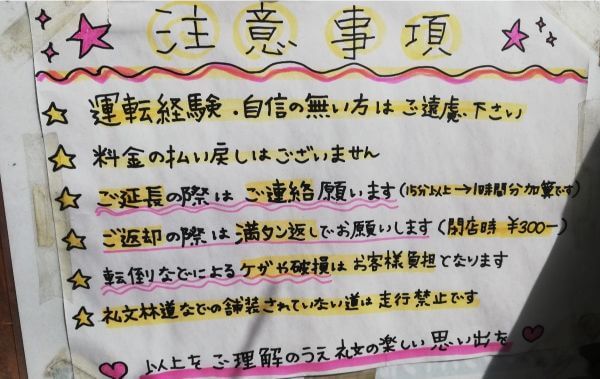 注意事項
運転経験・自信の無い方はご遠慮下さい
料金の払い戻しはございません
ご延長の際はご連絡願います(15分以上→1時間分加算です)
ご返却の際は満タン返しでお願いします(閉店時 ¥300-)
転倒などによるケガや破損はお客様負担となります
礼文林道などの舗装されていない道は走行禁止です
以上をご理解のうえ礼文の楽しい思い出を